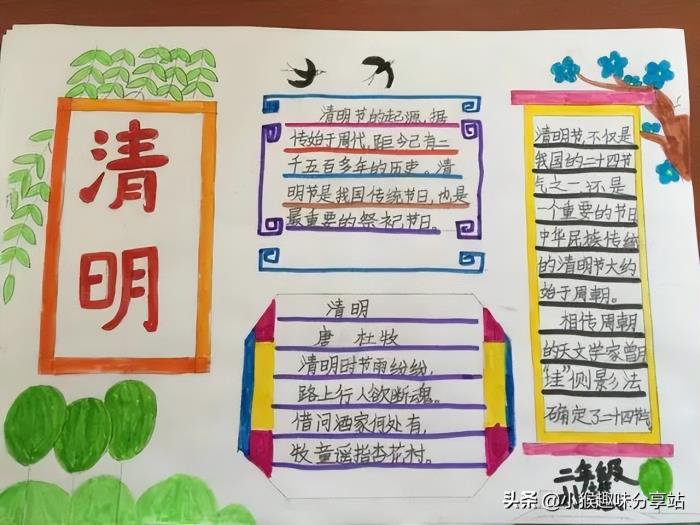 清
明
清明节的起源,据
传始于周代,距今已有二
千五百多年的历史。清
明节是我国传统节日,也是
最重要的祭祀节日。
清明
唐 杜牧
清明时节雨纷纷,
路上行人欲断魂。
借问酒家何处有,
牧童遥指杏花村。
清明节,不仅是
我国的二十四节
气之一,还是
一个重要的节日
中华民族传统
的清明节大约
始于周朝。
相传周朝
的天文学家曾用
"圭"侧影法
确定了二十四节气。
二年级
头条@小猴趣味分享站